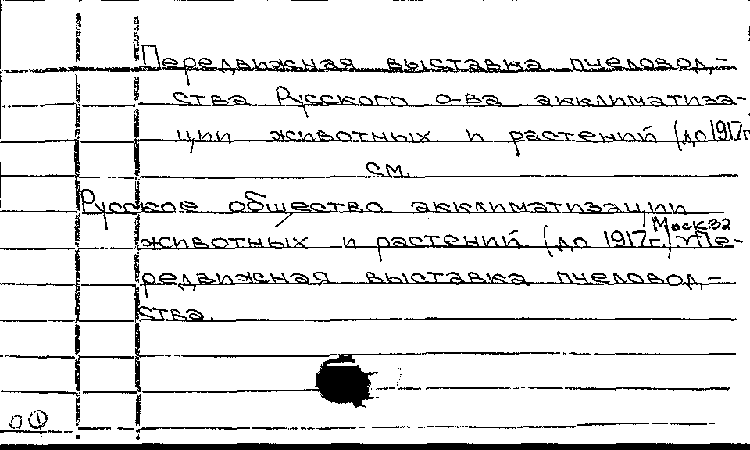 Передвижная выставка пчеловод-
ства Русского о-ва акклиматиза-
ции животных и растений (до 1917г.
см.
Русское общество акклиматизации
животных и растений (до 1917г.) Москва Пе-
редвижная выставка пчеловод-
ства.